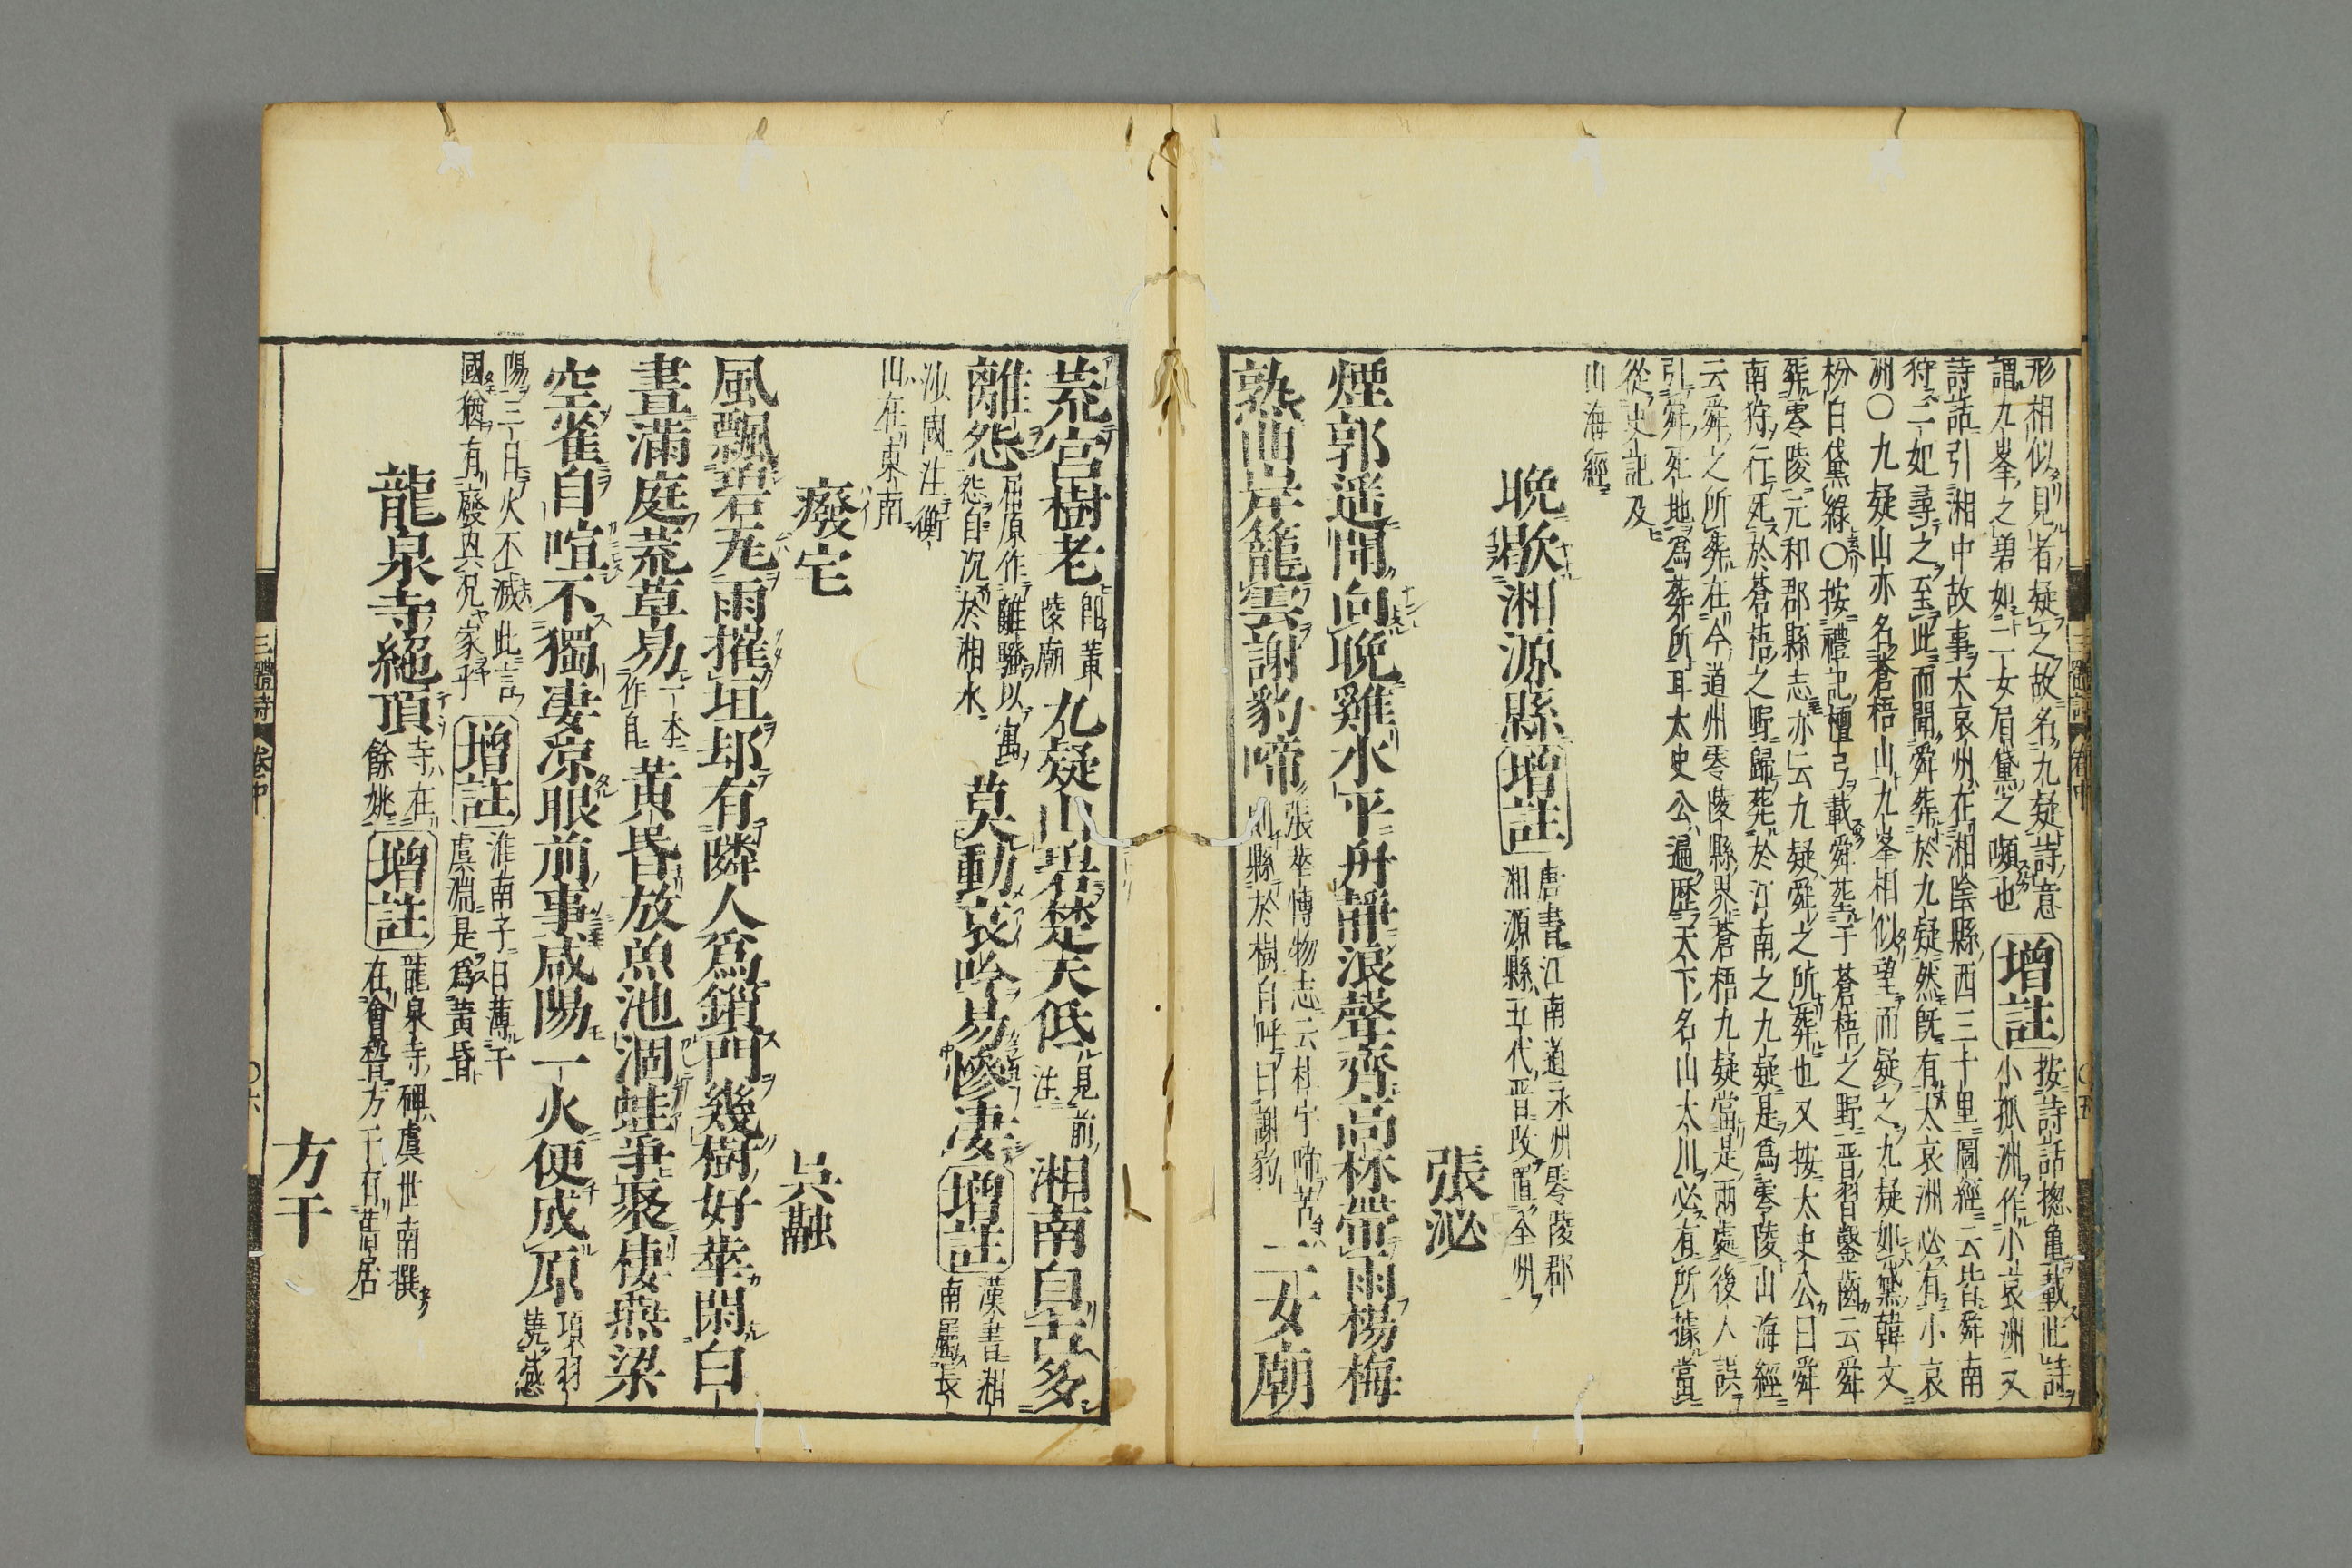 形相似見者疑之故名九疑詩意
謂九峯之碧如二女眉黛之嚬也 增註 按詩話總亀載此詩
小孤洲作小哀洲又
詩話引湘中故事大哀州在湘陰縣西三十里圖經云皆舜南
狩二妃尋之至此而聞舜葬於九疑然既有大哀洲必有小哀
洲〇九疑山亦名蒼梧山九峯相似望而疑之九疑如黛韓文
粉白黛綠〇按禮記檀弓載舜葬于蒼梧之野晋習鑿齒云舜
葬零陵元和郡縣志亦云九疑舜之所葬也又按太史公曰舜
南狩行死於蒼梧之野歸葬於江南之九疑是爲零陵山海經
云舜之所葬在今道州零陵縣界蒼梧九疑當是兩處後人誤
引舜死地爲葬所耳太史公遍歷天下名山大川必有所據當
從史記及
山海經
晚歇湘源縣 增註 唐書江南道永州零陵郡
湘源縣五代晋改置全州
張泌
煙郭遥聞向晚雞水平舟靜浪聲齊高林帶雨楊梅
熟曲岸籠雲謝豹啼 張華博物志云杜宇啼苦
則縣於樹自呼曰謝豹 二女廟
荒宮樹老 即黃
陵廟 九疑山碧楚天低 見前
注 湘南自古多
離怨 屈原作離騷以寓
怨自沉於湘水 莫動哀吟易慘凄 增註 漢書湘
南屬長
沙國注衡
山在東南
廢宅
吳融
風飄碧瓦雨摧垣却有隣人爲鎖門幾樹好華閑白
晝滿庭荒草易 一本
作自 黃昏放魚池涸蛙爭聚棲燕梁
空雀自喧不獨凄凉眼前事咸陽一火便成原 項羽
燒咸
陽三日火不滅此言
國猶有廢興况家乎 增註 淮南子日薄于
虞淵是爲黃昏
龍泉寺絕頂 寺在
餘姚 增註 龍泉寺碑虞世南撰
在會稽方干有舊居
方干
三體詩 卷中
〇五
三體詩 卷中
〇六